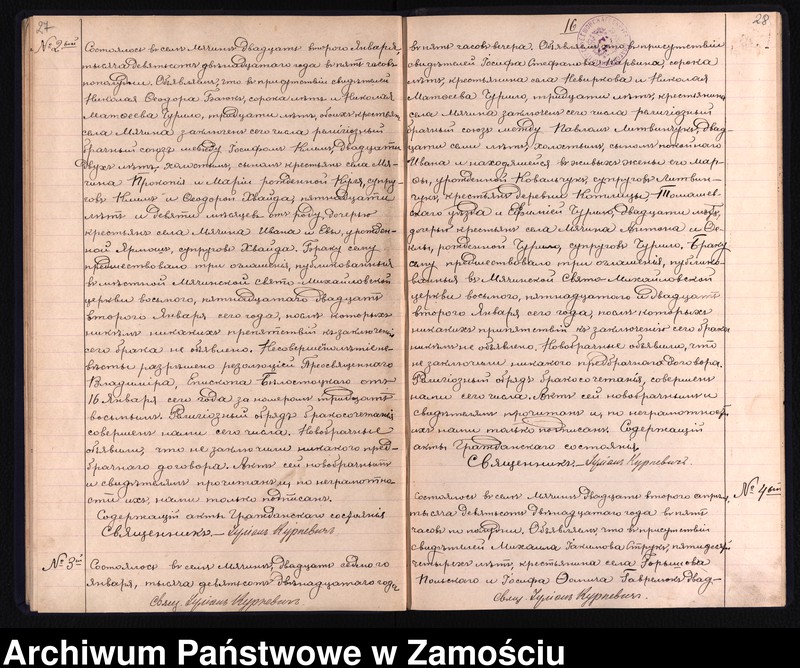 27
№ 2ой
Состоялось въ селѣ Мячинѣ двадцать второго Января,
тысяча девятьсотъ двѣнадцатаго года въ пять часовъ
пополудни. Объявляемъ, что въ присутствіи свидѣтелей
Николая Ѳеодора сорока лѣтъ и Николая
Матѳеева Чурило, тридцати лѣтъ, обоихъ крестьянъ
села Мячина заключенъ сего числа религіозный
брачный союзъ между Іосифомъ двадцати
двухъ лѣтъ, холостымъ, сыномъ крестьянъ села Мя-
чина Прокопія и Маріи рожденной супру-
говъ и Ѳеодорой Хвайда, пятнадцати
лѣтъ и девяти мѣсяцевъ отъ роду, дочерью
крестьянъ села Мячина Ивана и Евы, урожден-
ной супруговъ Хвайда. Браку сему
предшествовало три оглашенія, публикованныя
въ мѣстной Мячинской Свято-Михайловской
церкви восьмого, пятнадцатаго двадцать
второго Января сего года, послѣ которыхъ
никѣмъ никакихъ препятствій къ заключенію
сего брака не объявлено. Несовершеннолѣтіе не-
вѣсты разрѣшено резолюціей Преосвященнаго
Владиміра, Епископа Бѣлостоцкаго отъ
16 Января сего года за номеромъ тридцать
восьмымъ. Религіозный обрядъ бракосочетанія
совершенъ нами сего числа. Новобрачные
объявили, что не заключили никакого пред-
брачнаго договора. Актъ сей новобрачнымъ
и свидѣтелямъ прочитанъ и, по неграмотно-
сти ихъ, нами только подписанъ.
Содержащій акты Гражданскаго состоянія
Священникъ — Іуліанъ Куркевичъ
№ 3й
Состоялось въ селѣ Мячинѣ, двадцать седьмого
Января, тысяча девятьсотъ двѣнадцатаго года
Свящ. Іуліанъ Куркевичъ
16
28
въ пять часовъ вечера. Объявляемъ, что въ присутствіи
свидѣтелей Іосифа Стефанова сорока
лѣтъ, крестьянина села Невиркова и Николая
Матѳеева Чурило, тридцати лѣтъ, крестьянина
села Мячина заключенъ сего числа религіозный
брачный союзъ между Павломъ Литвинчукъ, двад-
цати семи лѣтъ, холостымъ, сыномъ покойнаго
Ивана и находящейся въ живыхъ жены его Мар-
ѳы, урожденной Ковальчукъ, супруговъ Литвин-
чукъ, крестьянъ деревни Котлицы, Томашев-
скаго уѣзда и Ефиміей Чурило, двадцати лѣтъ,
дочерью крестьянъ села Мячина Антона и Ѳе-
клы, рожденной Чурило, супруговъ Чурило. Браку
сему предшествовало три оглашенія, публико-
ванныя въ Мячинской Свято-Михайловской
церкви восьмого, пятнадцатаго и двадцать
второго Января сего года, послѣ которыхъ
никакихъ препятствій къ заключенію сего брака
никѣмъ не объявлено. Новобрачные объявили, что
не заключили никакого предбрачнаго договора.
Религіозный обрядъ бракосочетанія, совершенъ
нами сего числа. Актъ сей новобрачнымъ и
свидѣтелямъ прочитанъ и, по неграмотности
ихъ нами только подписанъ. Содержащій
акты Гражданскаго состоянія
Священникъ — Іуліанъ Куркевичъ.
№ 4ый
Состоялось въ селѣ Мячинѣ двадцать второго апрѣля,
тысяча девятьсотъ двѣнадцатаго года въ пять
часовъ по полудни. Объявляемъ, что въ присутствіи
свидѣтелей Михаила Іакимова пятидесяти
четырехъ лѣтъ, крестьянина села Горышова
Польскаго и Іосифа Ѳомича двад-
Свящ. Іуліанъ Куркевичъ.
Archiwum Państwowe w Zamościu